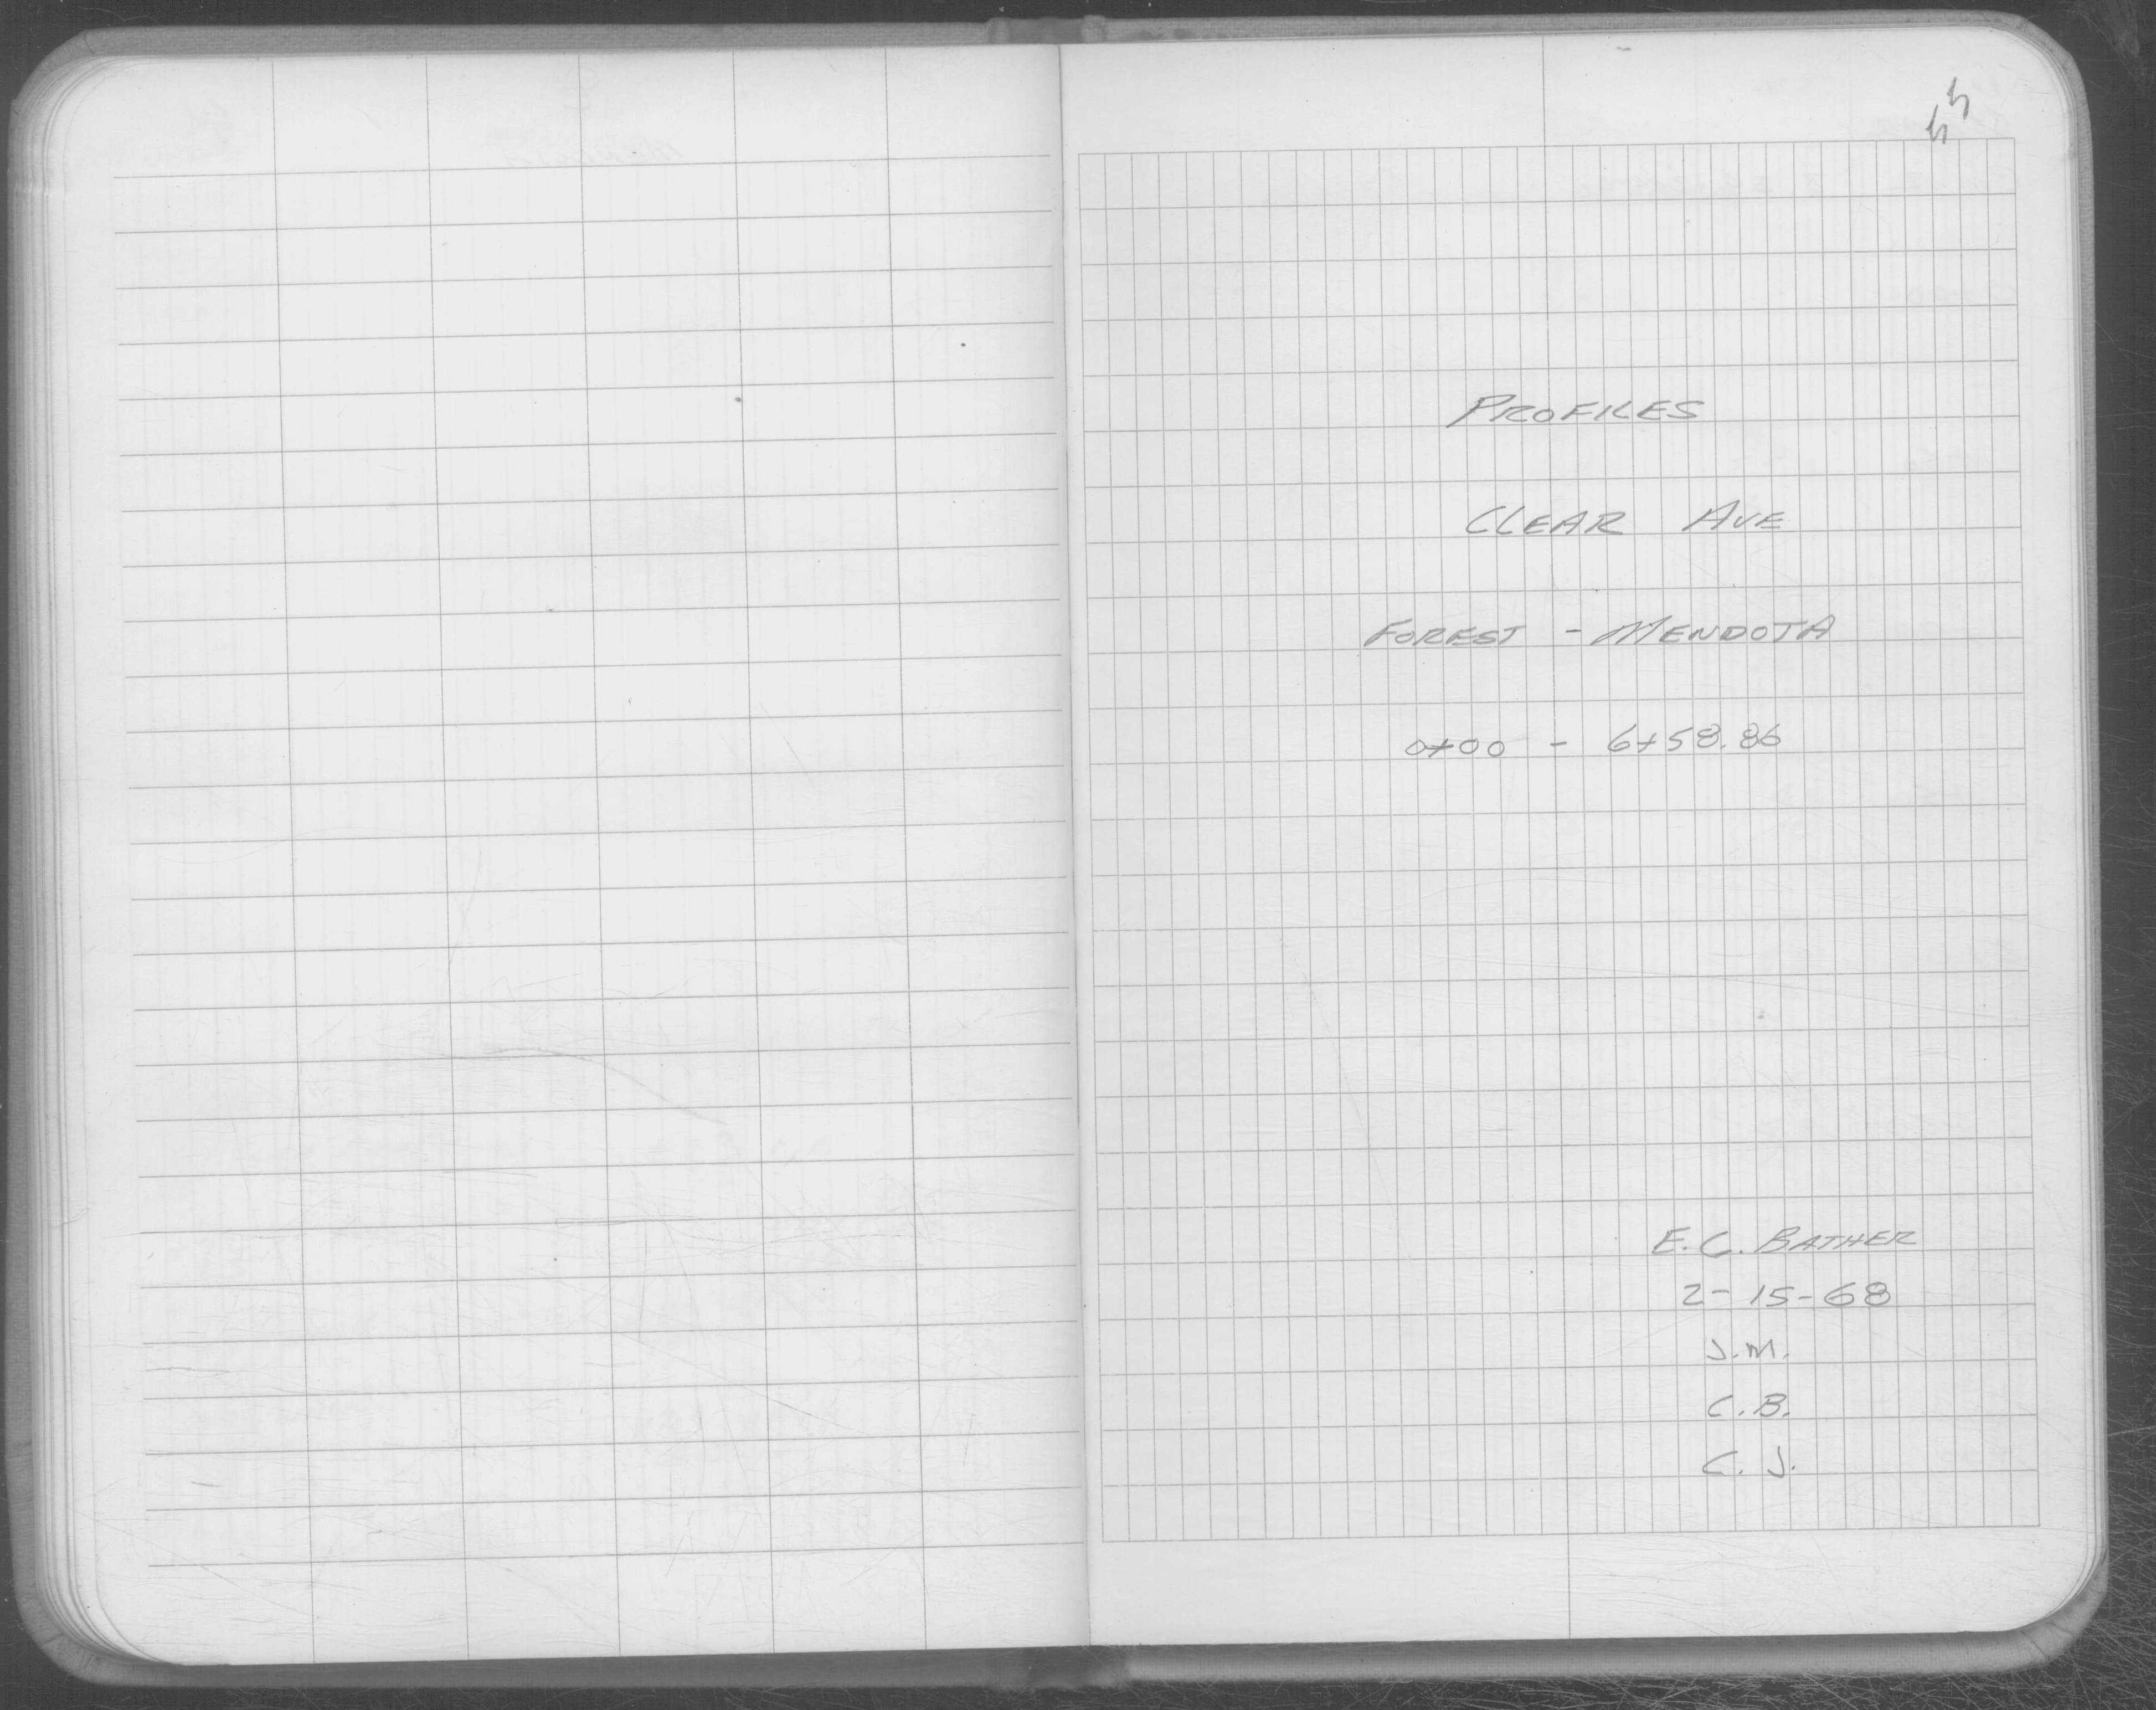 55
PROFILES
CLEAR AVE
FOREST - MENDOTA
0+00 - 6+58.86
E.C. BATHER
2-15-68
J.M.
C.B.
C.J.